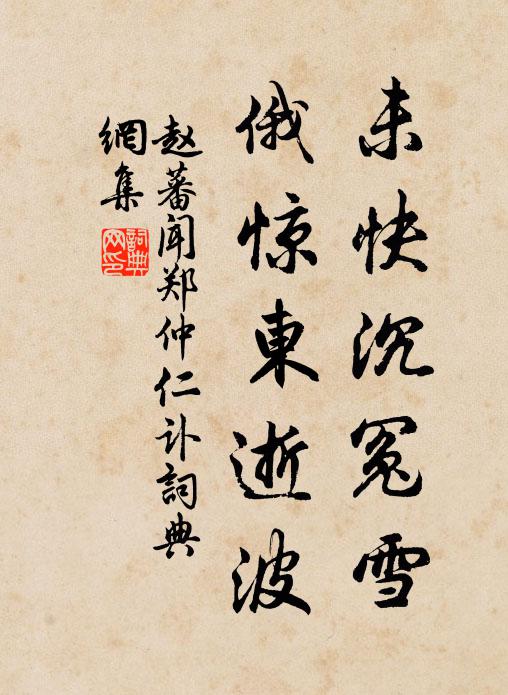 未快沉冤雪
俄惊東逝波
赵蕃闻郑仲仁讣詞典
網集
詞典
网印